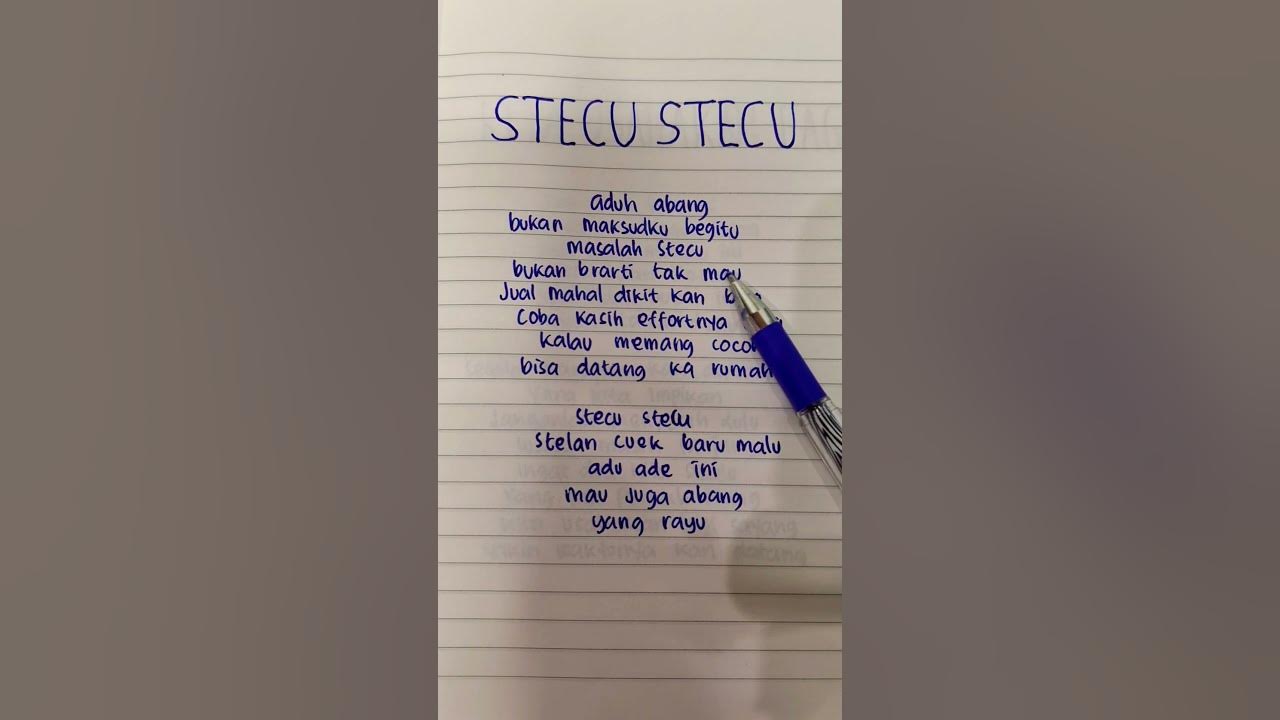 STECU STECU
aduh abang
bukan maksudku begitu
masalah stecu
bukan brarti tak mau
Jual mahal dikit kan
coba kasih effortnya
kalau memang
bisa datang ka rumah
stecu stecu
stelan cuek baru malu
adu ade ini
mau juga abang
yang rayu